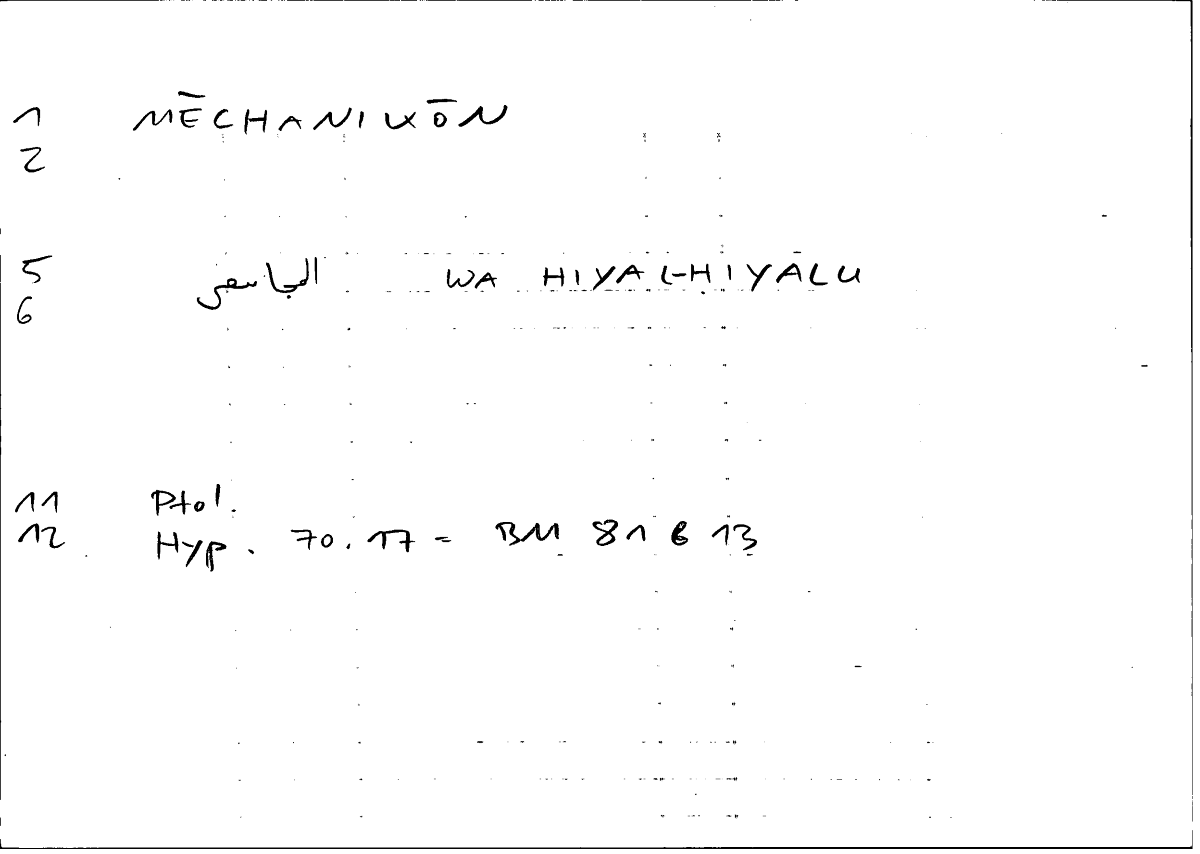 1 MĒCHANIKŌN
2
5 WA HIYAL-HIYALU
6
11 Ptol.
12 Hyp. 70.17 = BM 81 6 13